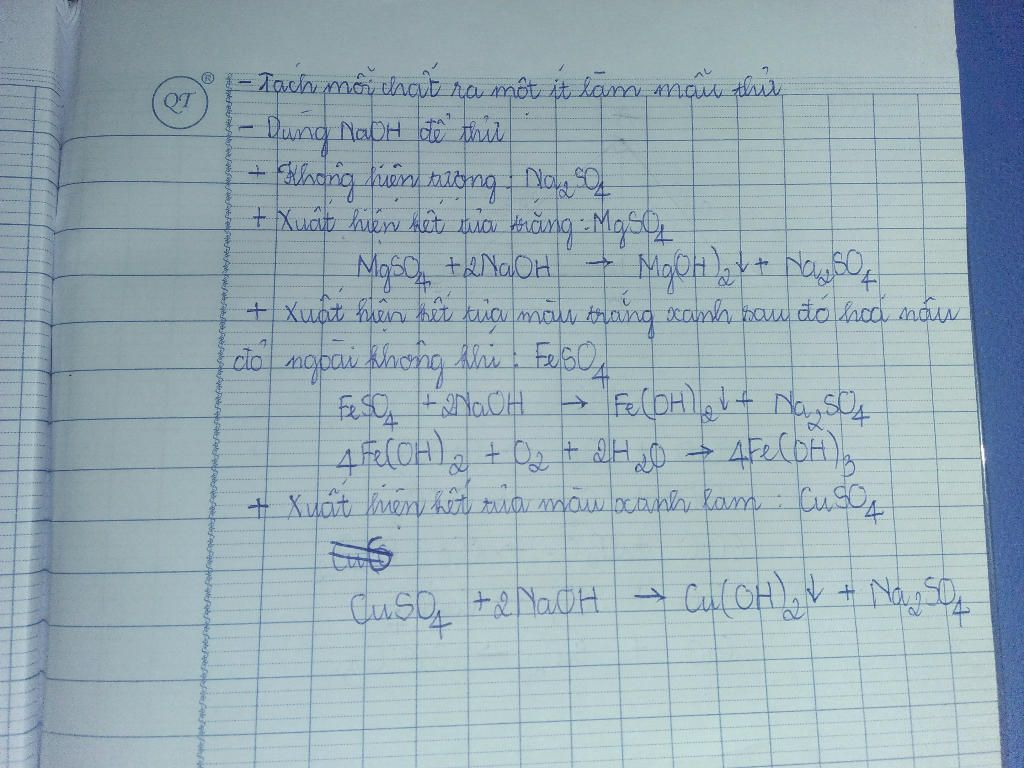 QT ®
- Tách mỗi chất ra một ít làm mẫu thử
- Dùng NaOH để thử
+ Không hiện tượng : Na₂SO₄
+ Xuất hiện kết tủa trắng : MgSO₄
MgSO₄ + 2NaOH → Mg(OH)₂↓ + Na₂SO₄
+ Xuất hiện kết tủa màu trắng xanh sau đó hoá nâu
đỏ ngoài không khí : FeSO₄
FeSO₄ + 2NaOH → Fe(OH)₂↓ + Na₂SO₄
4Fe(OH)₂ + O₂ + 2H₂O → 4Fe(OH)₃
+ Xuất hiện kết tủa màu xanh lam : CuSO₄
CuSO₄ + 2NaOH → Cu(OH)₂↓ + Na₂SO₄